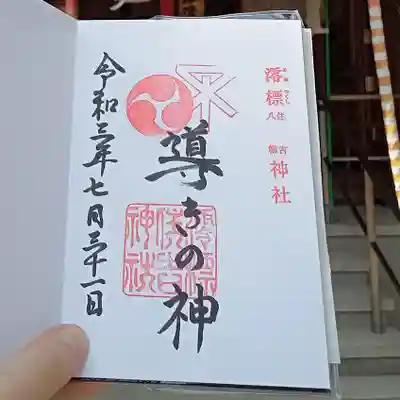 澪標
つくし
住吉
神社
導きの神
令和三年七月三十一日
澪標住吉神社